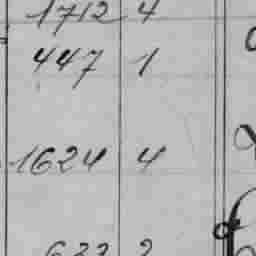 1712 4
447 1
1624 4
633 2